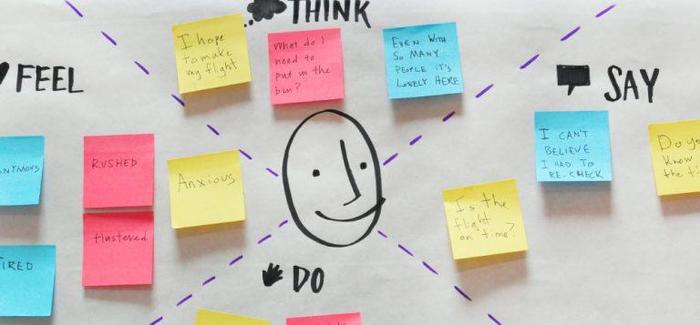 THINK
I hope
to make
my flight
What do I
need to
put in the
bin?
EVEN WITH
SO MANY
PEOPLE IT'S
LONELY HERE
FEEL
RUSHED
Anxious
flustered
SAY
I CAN'T
BELIEVE
I HAD TO
RE-CHECK
Do yo
Know
the ti
Is the
flight
on time?
DO